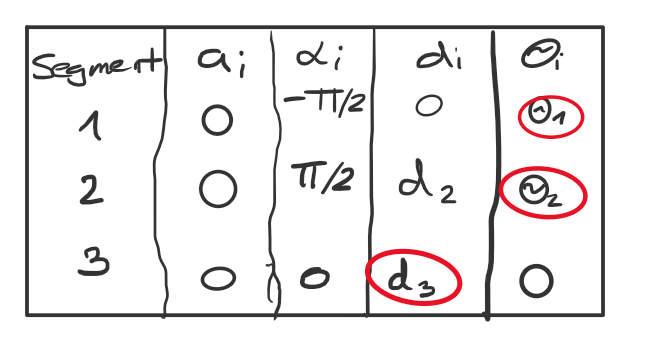 Segment ai αi di Θi
1 0 -π/2 0 Θ1
2 0 π/2 d2 Θ2
3 0 0 d3 0